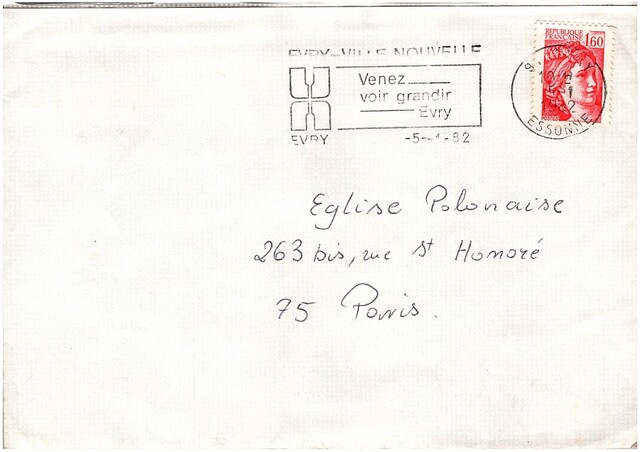 EVRY-VILLE NOUVELLE
Venez
voir grandir
Evry
EVRY
-5--1-82
REPUBLIQUE
FRANÇAISE
1,60
ESSONNE
Eglise Polonaise
263 bis, rue St Honoré
75 Paris.